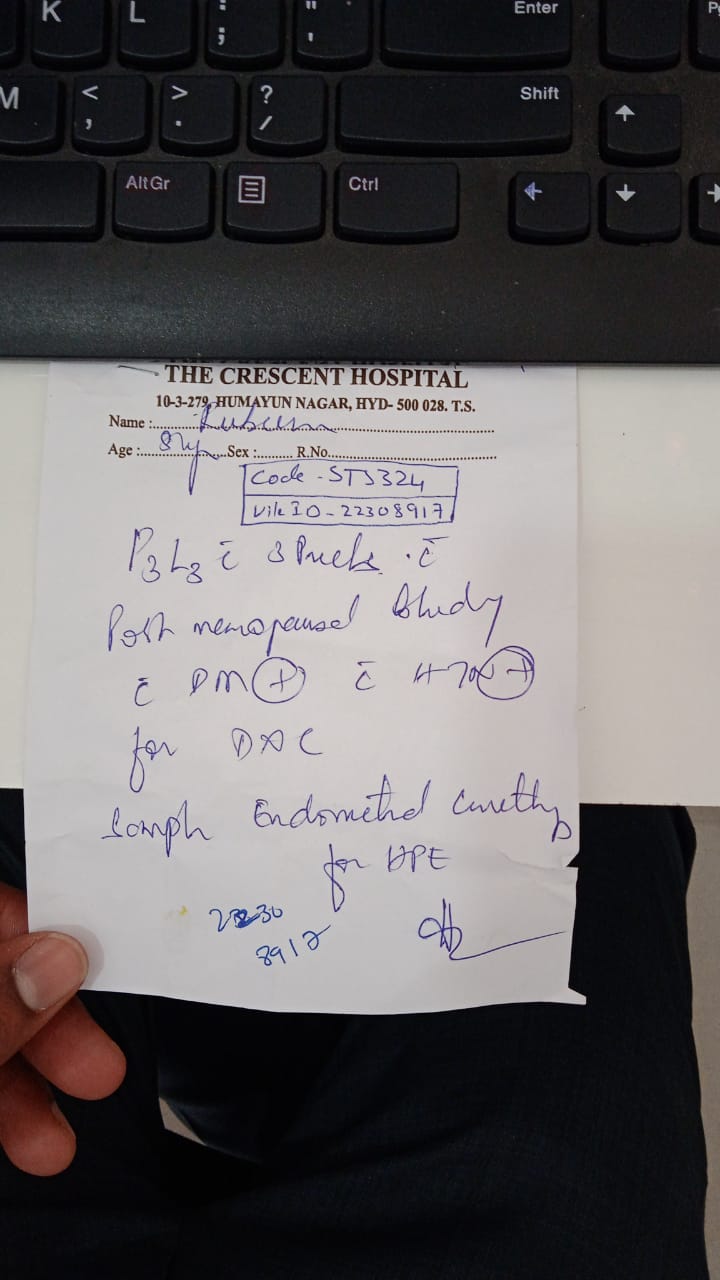 K
L
:
;
"
'
Enter
M
<
,
>
.
?
/
Shift
Alt Gr
Ctrl
THE CRESCENT HOSPITAL
10-3-279, HUMAYUN NAGAR, HYD- 500 028. T.S.
Name :
Age : Sex : R.No.
Code - STS324
Vile ID - 22308917
P3L3 c̄ 3 . c̄
Post menopausal
c̄ DM (+) c̄ HTN (+)
for D&C
Sample Endometrial
for HPE
8917